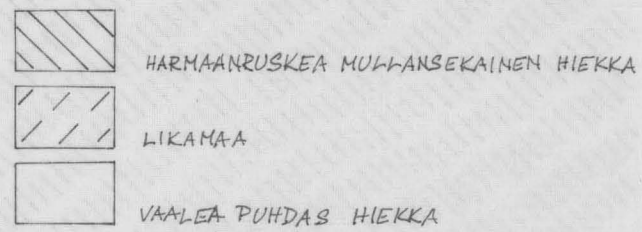 HARMAANRUSKEA MULLANSEKAINEN HIEKKA
LIKAMAA
VAALEA PUHDAS HIEKKA